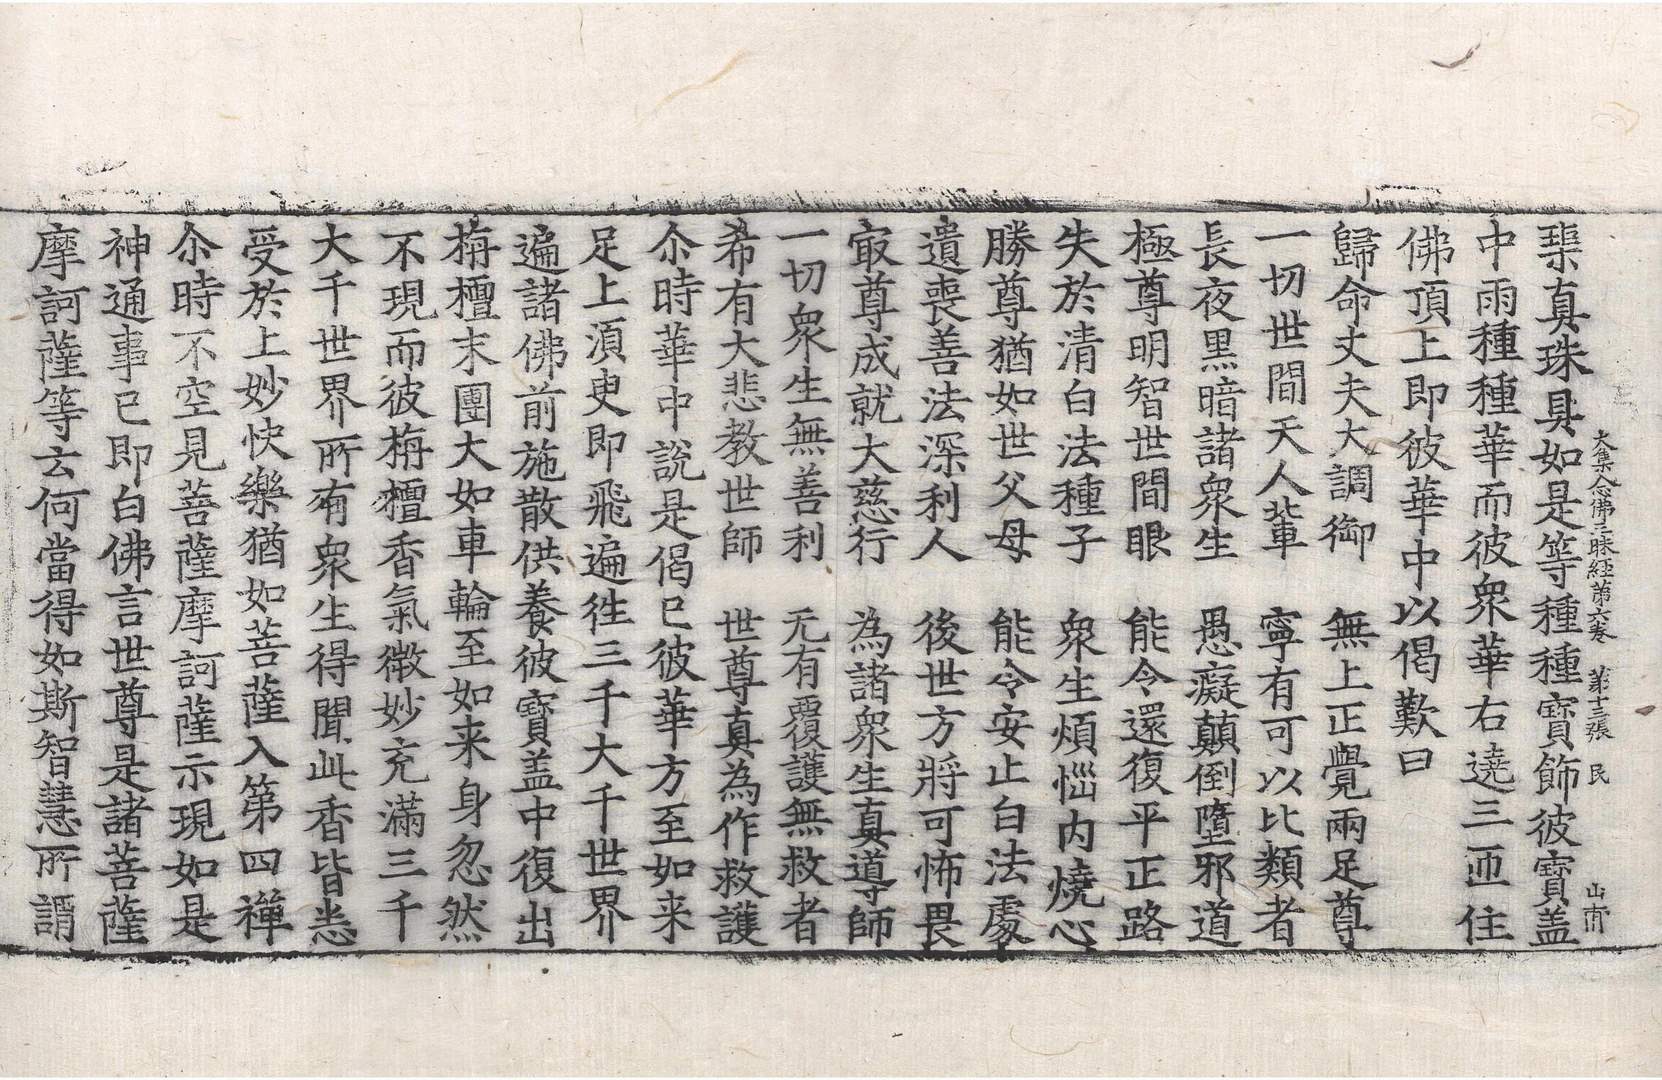 大集念佛三昧經第六卷　第十三張　民　山甫
璖真珠具如是等種種寶飾彼寶盖
中雨種種華而彼衆華右遶三匝住
佛頂上即彼華中以偈歎曰
歸命丈夫大調御　無上正覺兩足尊
一切世間天人輩　寧有可以比類者
長夜黑暗諸衆生　愚癡顛倒墮邪道
極尊明智世間眼　能令還復平正路
失於清白法種子　衆生煩惱内燒心
勝尊猶如世父母　能令安止白法處
遺喪善法深利人　後世方將可怖畏
㝡尊成就大慈行　為諸衆生真導師
一切衆生無善利　无有覆護無救者
希有大悲教世師　世尊真為作救護
尒時華中說是偈已彼華方至如来
足上湏臾即飛遍徃三千大千世界
遍諸佛前施散供養彼寶盖中復出
栴檀末團大如車輪至如来身忽然
不現而彼栴檀香氣微妙充滿三千
大千世界所有衆生得聞此香皆悉
受於上妙快樂猶如菩薩入第四禪
尒時不空見菩薩摩訶薩示現如是
神通事已即白佛言世尊是諸菩薩
摩訶薩等云何當得如斯智慧所謂